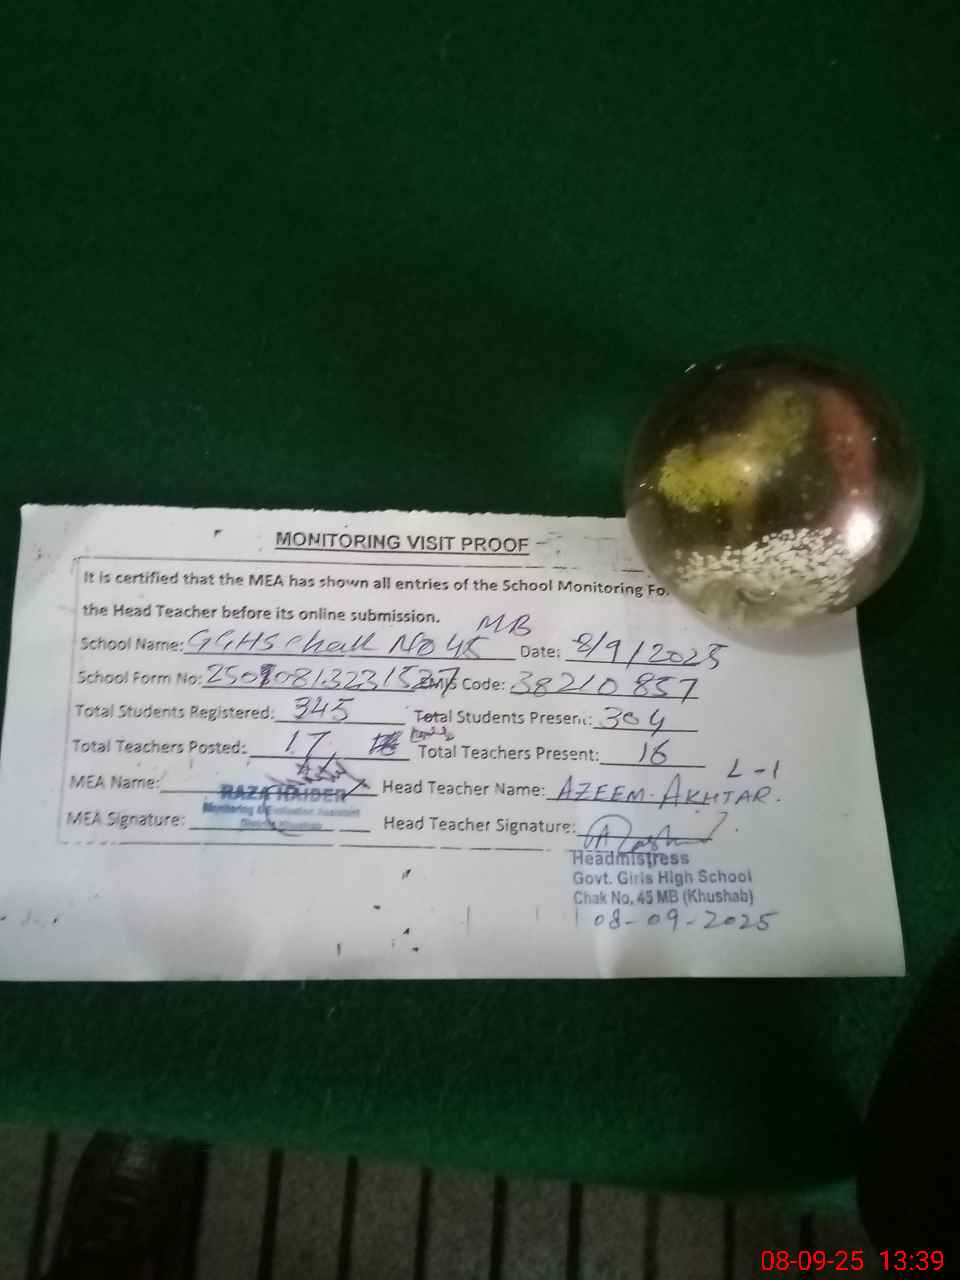 MONITORING VISIT PROOF
It is certified that the MEA has shown all entries of the School Monitoring Fo
the Head Teacher before its online submission.
School Name: GGHS Chak No 45 MB Date: 8/9/2025
School Form No: EMIS Code: 38210857
Total Students Registered: 345 Total Students Present: 304
Total Teachers Posted: 17 Total Teachers Present: 16
L-1
MEA Name: Head Teacher Name: AZEEM AKHTAR.
RAZA HAIDER
Monitoring & Evaluation Assistant
District Khushab
MEA Signature: Head Teacher Signature:
Headmistress
Govt. Girls High School
Chak No, 45 MB (Khushab)
08-09-2025
08-09-25 13:39